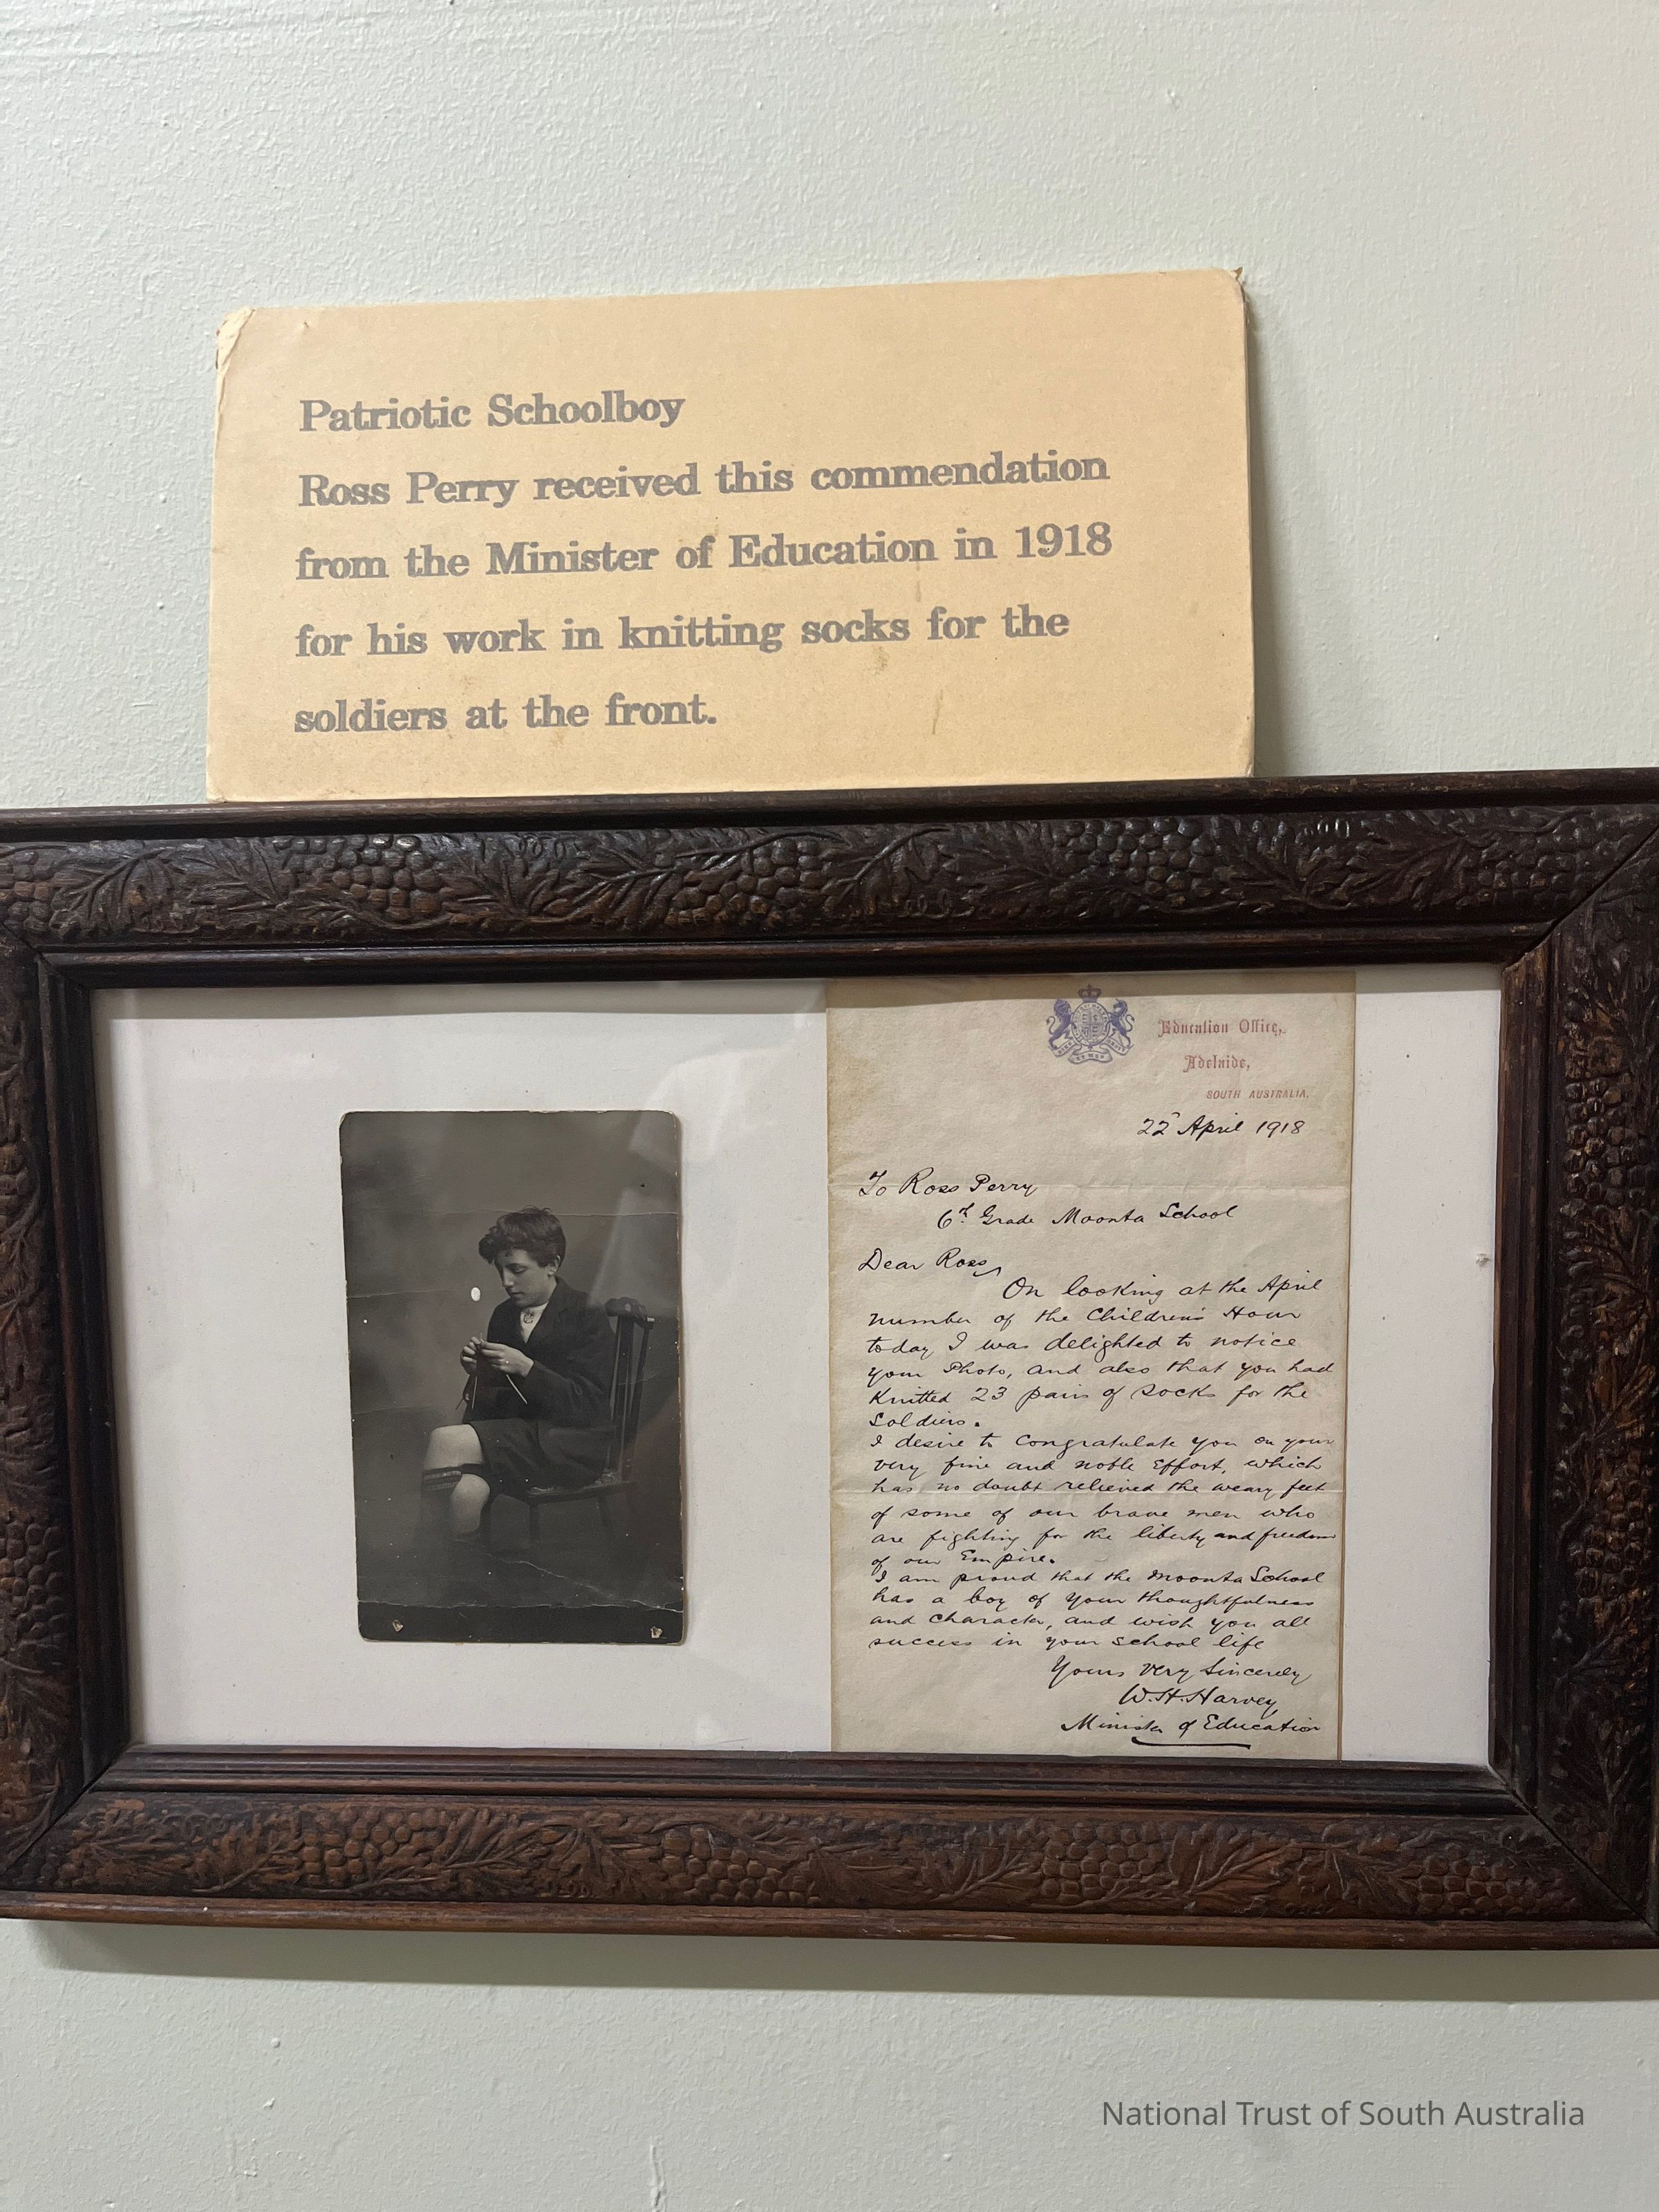 Patriotic Schoolboy
Ross Perry received this commendation
from the Minister of Education in 1918
for his work in knitting socks for the
soldiers at the front.
Education Office,
Adelaide,
SOUTH AUSTRALIA.
22nd April 1918
To Ross Perry
6th Grade Moonta School
Dear Ross,
On looking at the April
number of the Children's Hour
today I was delighted to notice
your Photo, and also that you had
Knitted 23 pairs of socks for the
Soldiers.
I desire to congratulate you on your
very fine and noble Effort, which
has no doubt relieved the weary feet
of some of our brave men who
are fighting for the liberty and freedom
of our Empire.
I am proud that the Moonta School
has a boy of your thoughtfulness
and character, and wish you all
success in your school life
Yours very sincerely
W. H. Harvey
Minister of Education
National Trust of South Australia